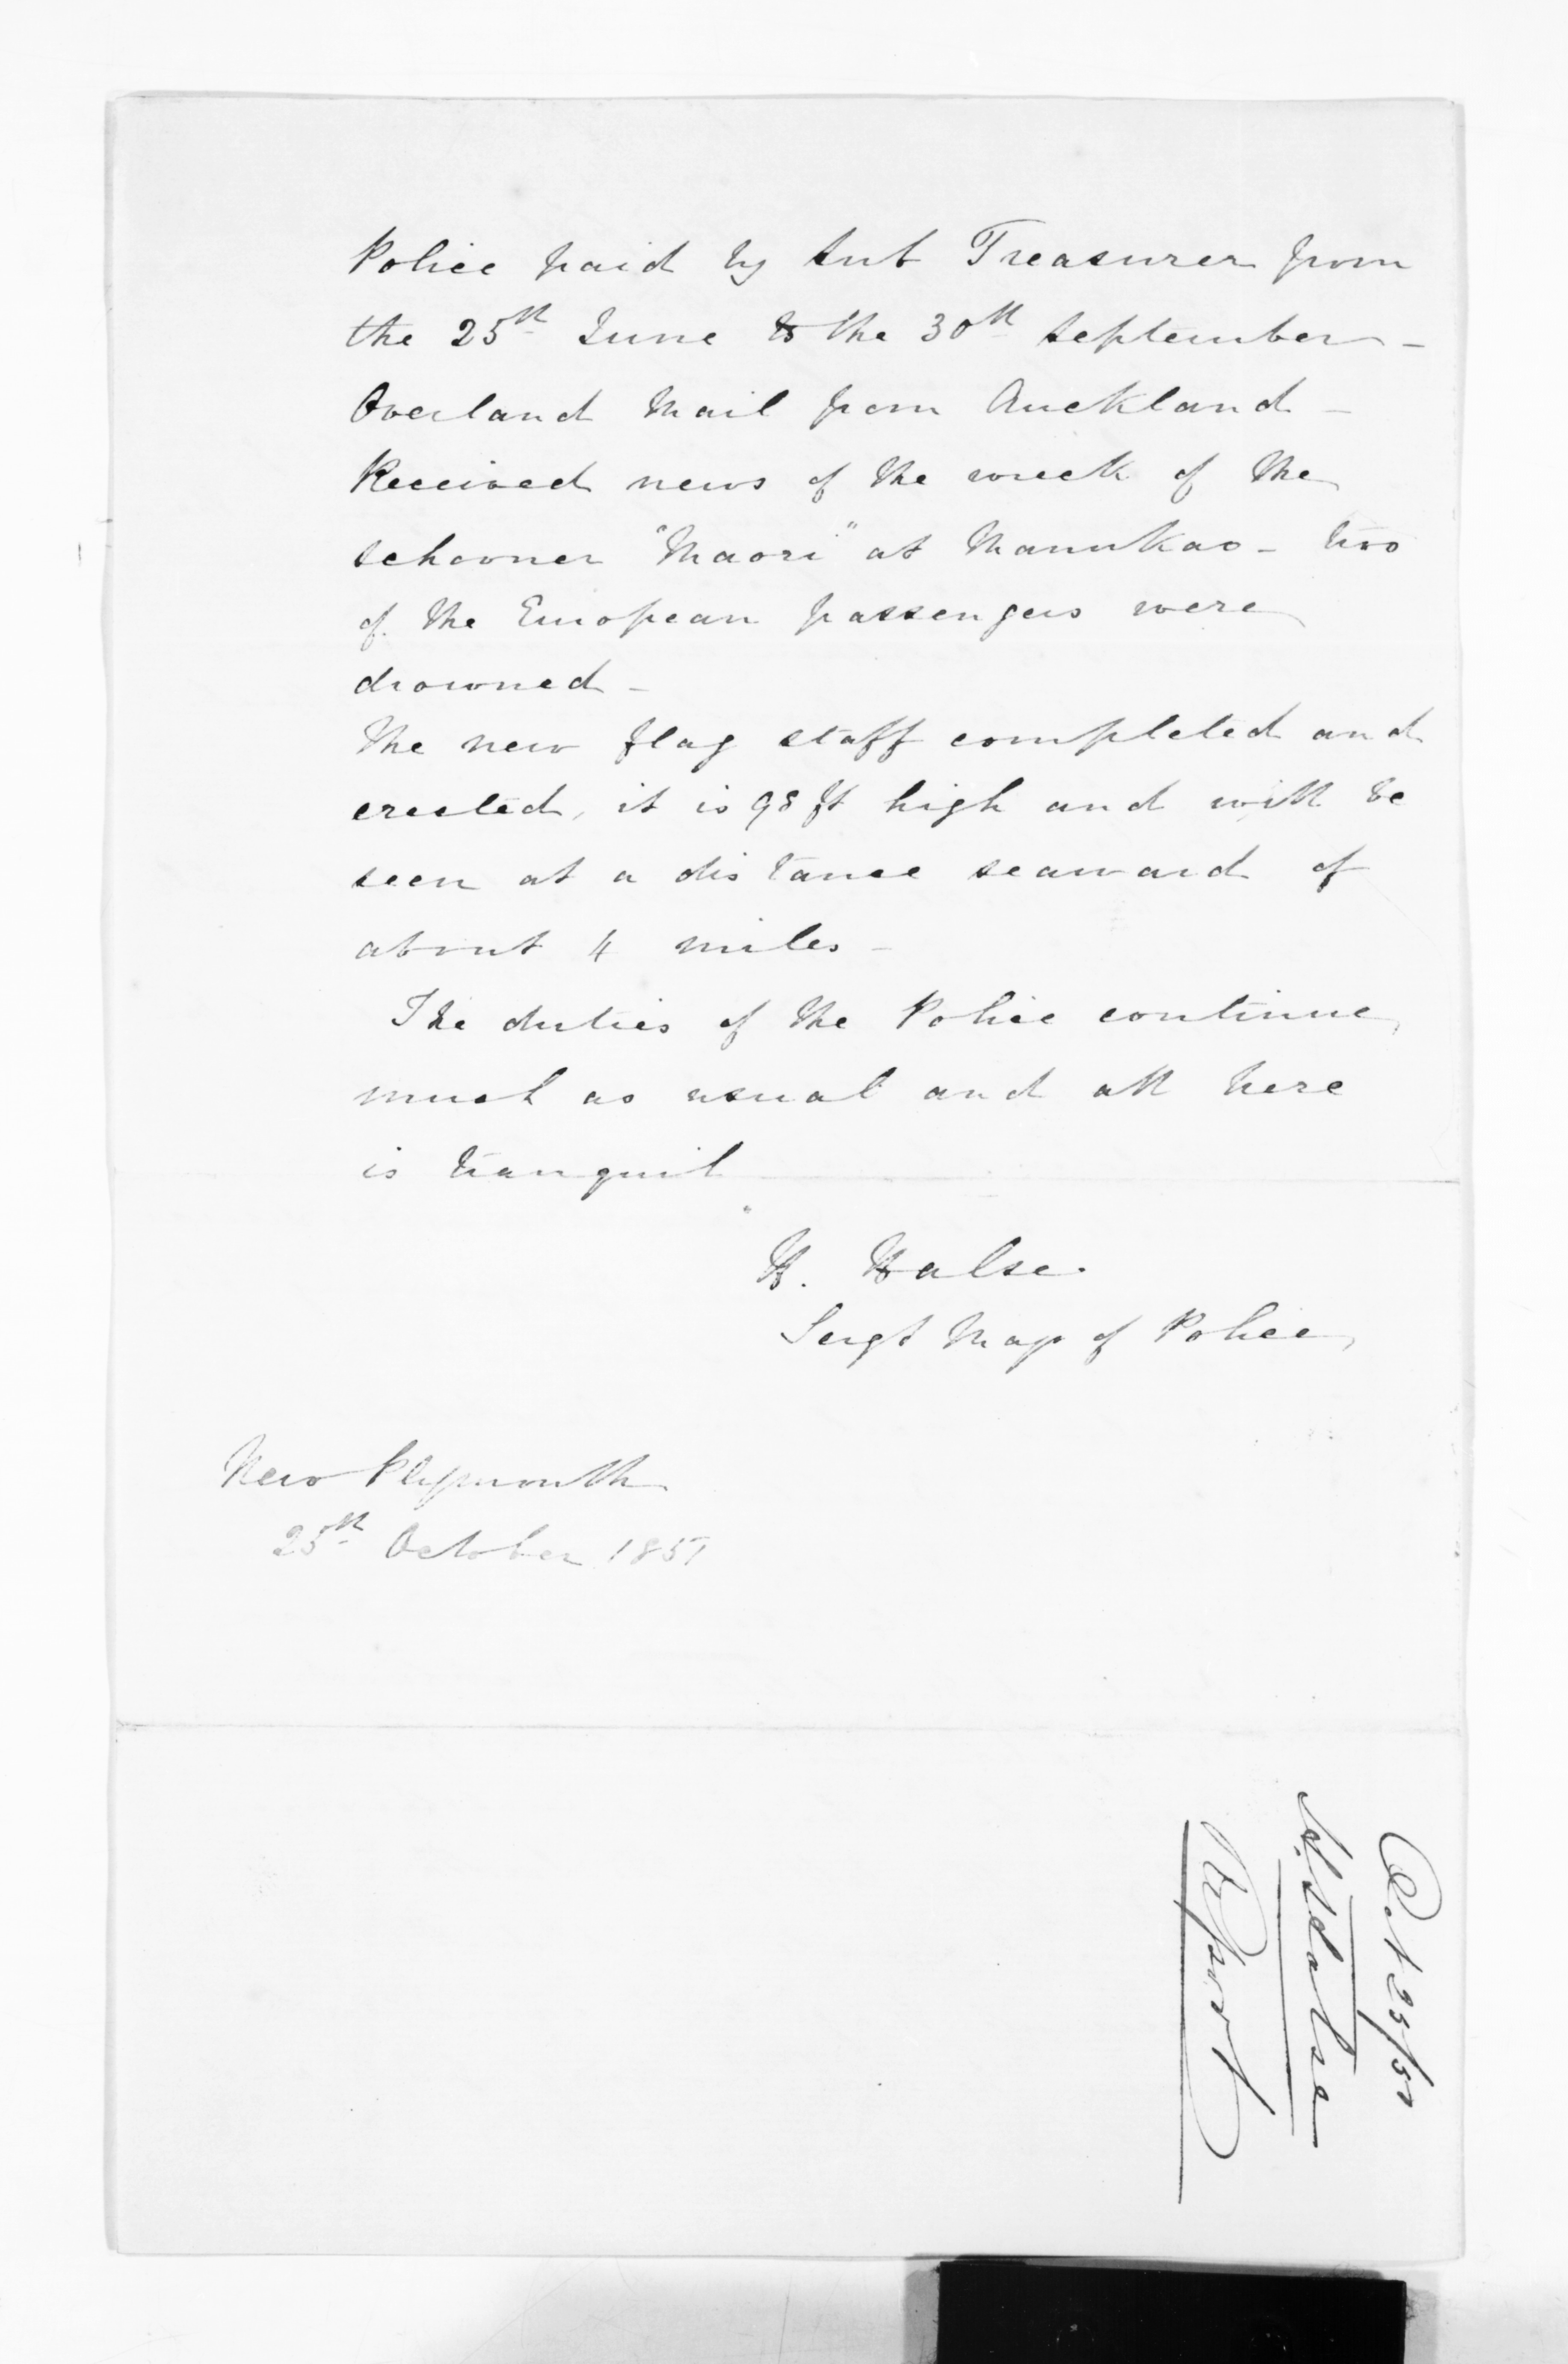 Police paid by Sub Treasurer from
the 25th June to the 30th September -
Overland Mail from Auckland -
Received news of the wreck of the
schooner "Maori" at Manukao - two
of the European passengers were
drowned -
The new flag staff completed and
erected, it is 98 ft high and will be
seen at a distance seaward of
about 4 miles -
The duties of the Police continue
much as usual and all here
is tranquil
H. Halse.
Sergt Major of Police
New Plymouth
25th October 1851
Oct 25/51
H. Halse
Report